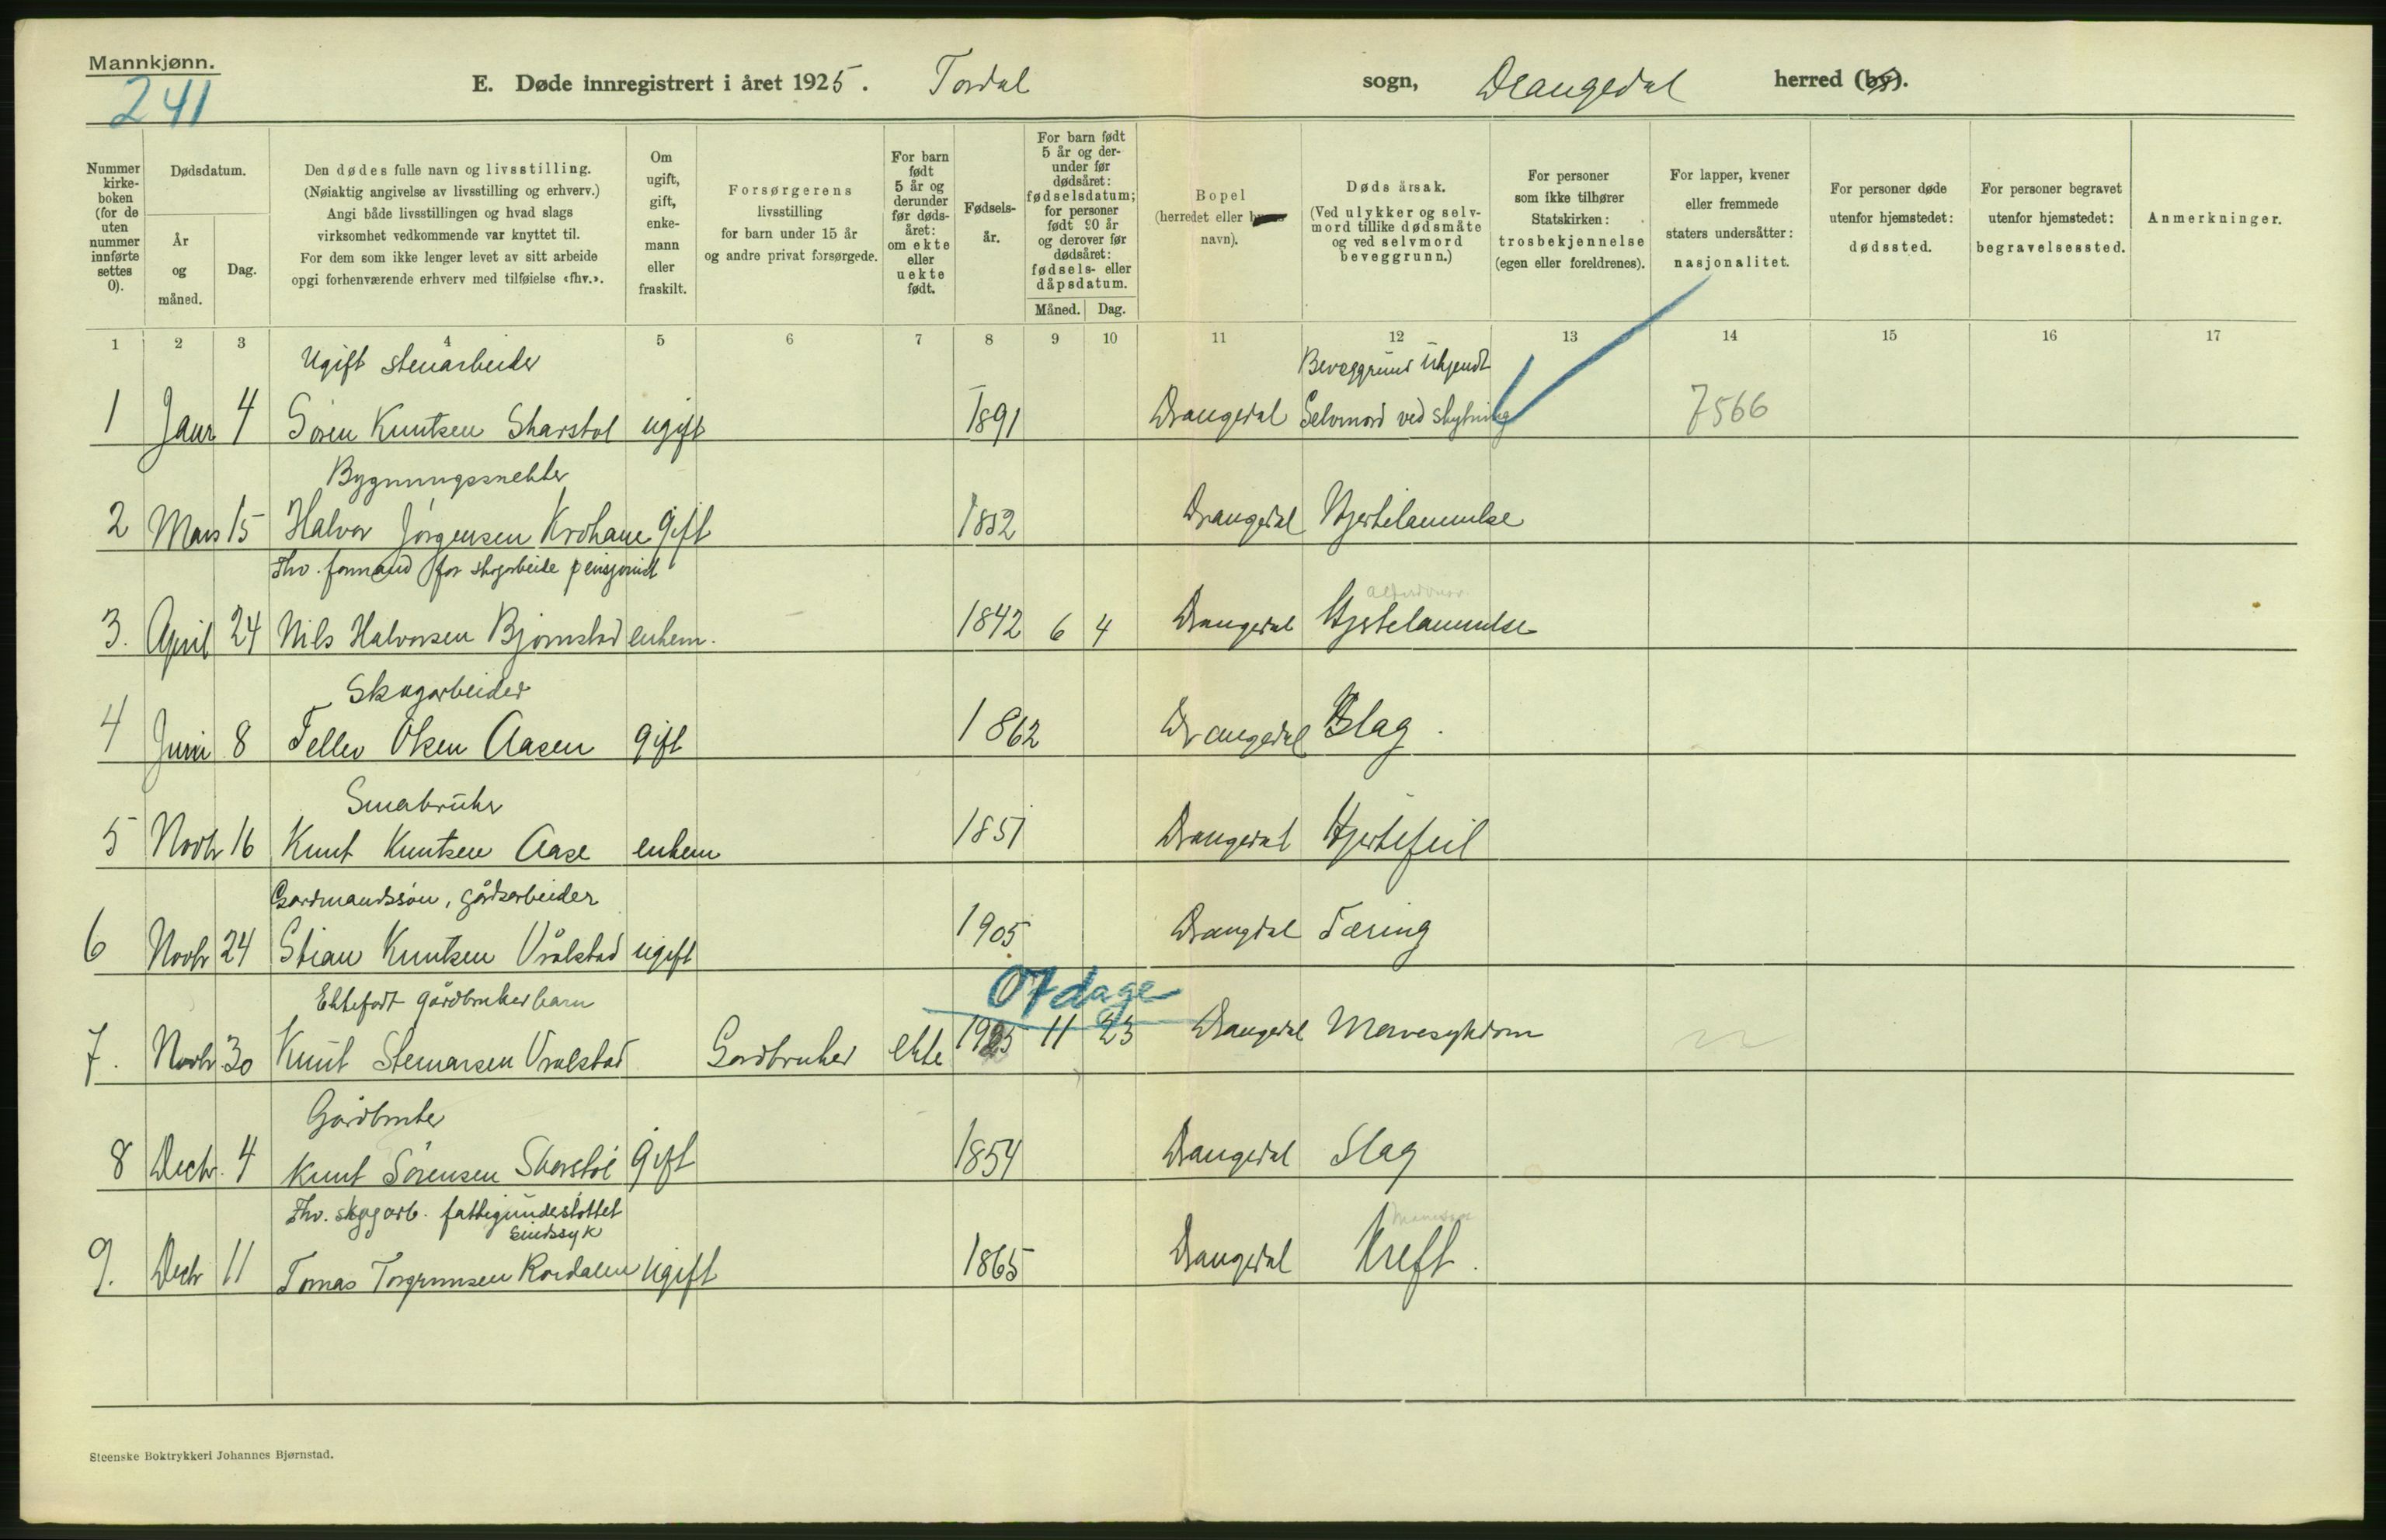 Mannkjønn.
241
E. Døde innregistrert i året 1925. Tordal sogn, Drangedal herred (by).
Nummer kirke- boken (for de uten nummer innførte settes 0).
Dødsdatum.
År og måned.
Dag.
Den dødes fulle navn og livsstilling.
(Nøiaktig angivelse av livsstilling og erhverv.)
Angi både livsstillingen og hvad slags
virksomhet vedkommende var knyttet til.
For dem som ikke lenger levet av sitt arbeide
opgi forhenværende erhverv med tilføielse «fhv.».
Om ugift, gift, enke- mann eller fraskilt.
Forsørgerens
livsstilling
for barn under 15 år
og andre privat forsørgede.
For barn født 5 år og derunder før døds- året: om ekte eller uekte født.
Fødsels- år.
For barn født 5 år og der- under før dødsåret: fødselsdatum; for personer født 90 år og derover før dødsåret: fødsels- eller dåpsdatum.
Måned. Dag.
Bopel
(herredet eller
navn).
Døds årsak.
(Ved ulykker og selv-
mord tillike dødsmåte
og ved selvmord
beveggrunn.)
For personer
som ikke tilhører
Statskirken:
trosbekjennelse
(egen eller foreldrenes).
For lapper, kvener
eller fremmede
staters undersåtter:
nasjonalitet.
For personer døde
utenfor hjemstedet:
dødssted.
For personer begravet
utenfor hjemstedet:
begravelsessted.
Anmerkninger.
1 2 3 4 5 6 7 8 9 10 11 12 13 14 15 16 17
Ugift stenarbeider Beveggrund Ukjendt
1 Janr 4 Sören Knutsen Skarstol ugift 1891 Drangedal Selvmord ved skytning 7566
Bygningssnekker
2 Mars 15 Halvor Jörgensen Krohane gift 1852 Drangedal Hjertelammelse
Fhv. formand for skogarbeide pensjonist
3. April 24 Nils Halvorsen Bjornstad enkem. 1842 6 4 Drangedal Hjertelammelse
Skogarbeider
4 Juni 8 Tellev Olsen Aasen gift 1862 Drangedal Slag.
Smabruker
5 Novbr 16 Knut Knutsen Aase enkem 1851 Drangedal Hjertefeil
Gardmandssön, gårdsarbeider
6 Novbr 24 Stian Knutsen Vrålstad ugift 1905 Drangdal Tæring
07 dage
Ektefödt gårdbruker barn
7. Novbr 30 Knut Steinarsen Vralstad Gardbruker ekte 1925 11 23 Drangedal Mavesykdom
Gårdbruker
8 Decbr. 4 Knut Sörensen Skarstöl Gift 1854 Drangedal Slag
Fhv. skogarb. fattigunderstöttet
Sindssyk
9. Decbr 11 Tomas Torgrimsen Rordalen ugift 1865 Drangedal Kreft.
Steenske Boktrykkeri Johannes Bjørnstad.